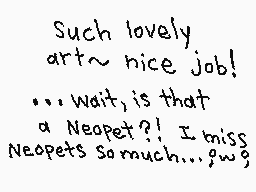 Such lovely
art~ nice job!
... wait, is that
a Neopet?! I miss
Neopets so much... ;w;